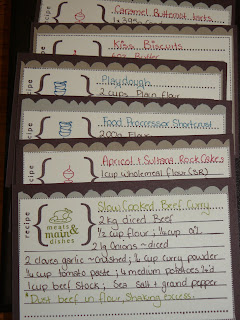 recipe
Caramel Butternut Tarts
1 x 395g
recipe
Kiss Biscuits
recipe
Playdough
2 cups Plain Flour
recipe
Food Processor Shortcrust
200g Flour
recipe
Apricot & Sultana Rock Cakes
1 cup wholemeal flour (SR)
recipe
meats
main &
dishes
Slow Cooked Beef Curry
2 kg diced Beef
1/2 cup flour ; 1/4 cup oil
2 lg Onions ~ diced
2 cloves garlic ~ crushed ; 1/4 cup curry powder
1/4 cup tomato paste ; 4 medium potatoes 1/4'd
1 cup beef Stock ; Sea Salt & grand pepper
*Dust beef in flour, shaking excess.